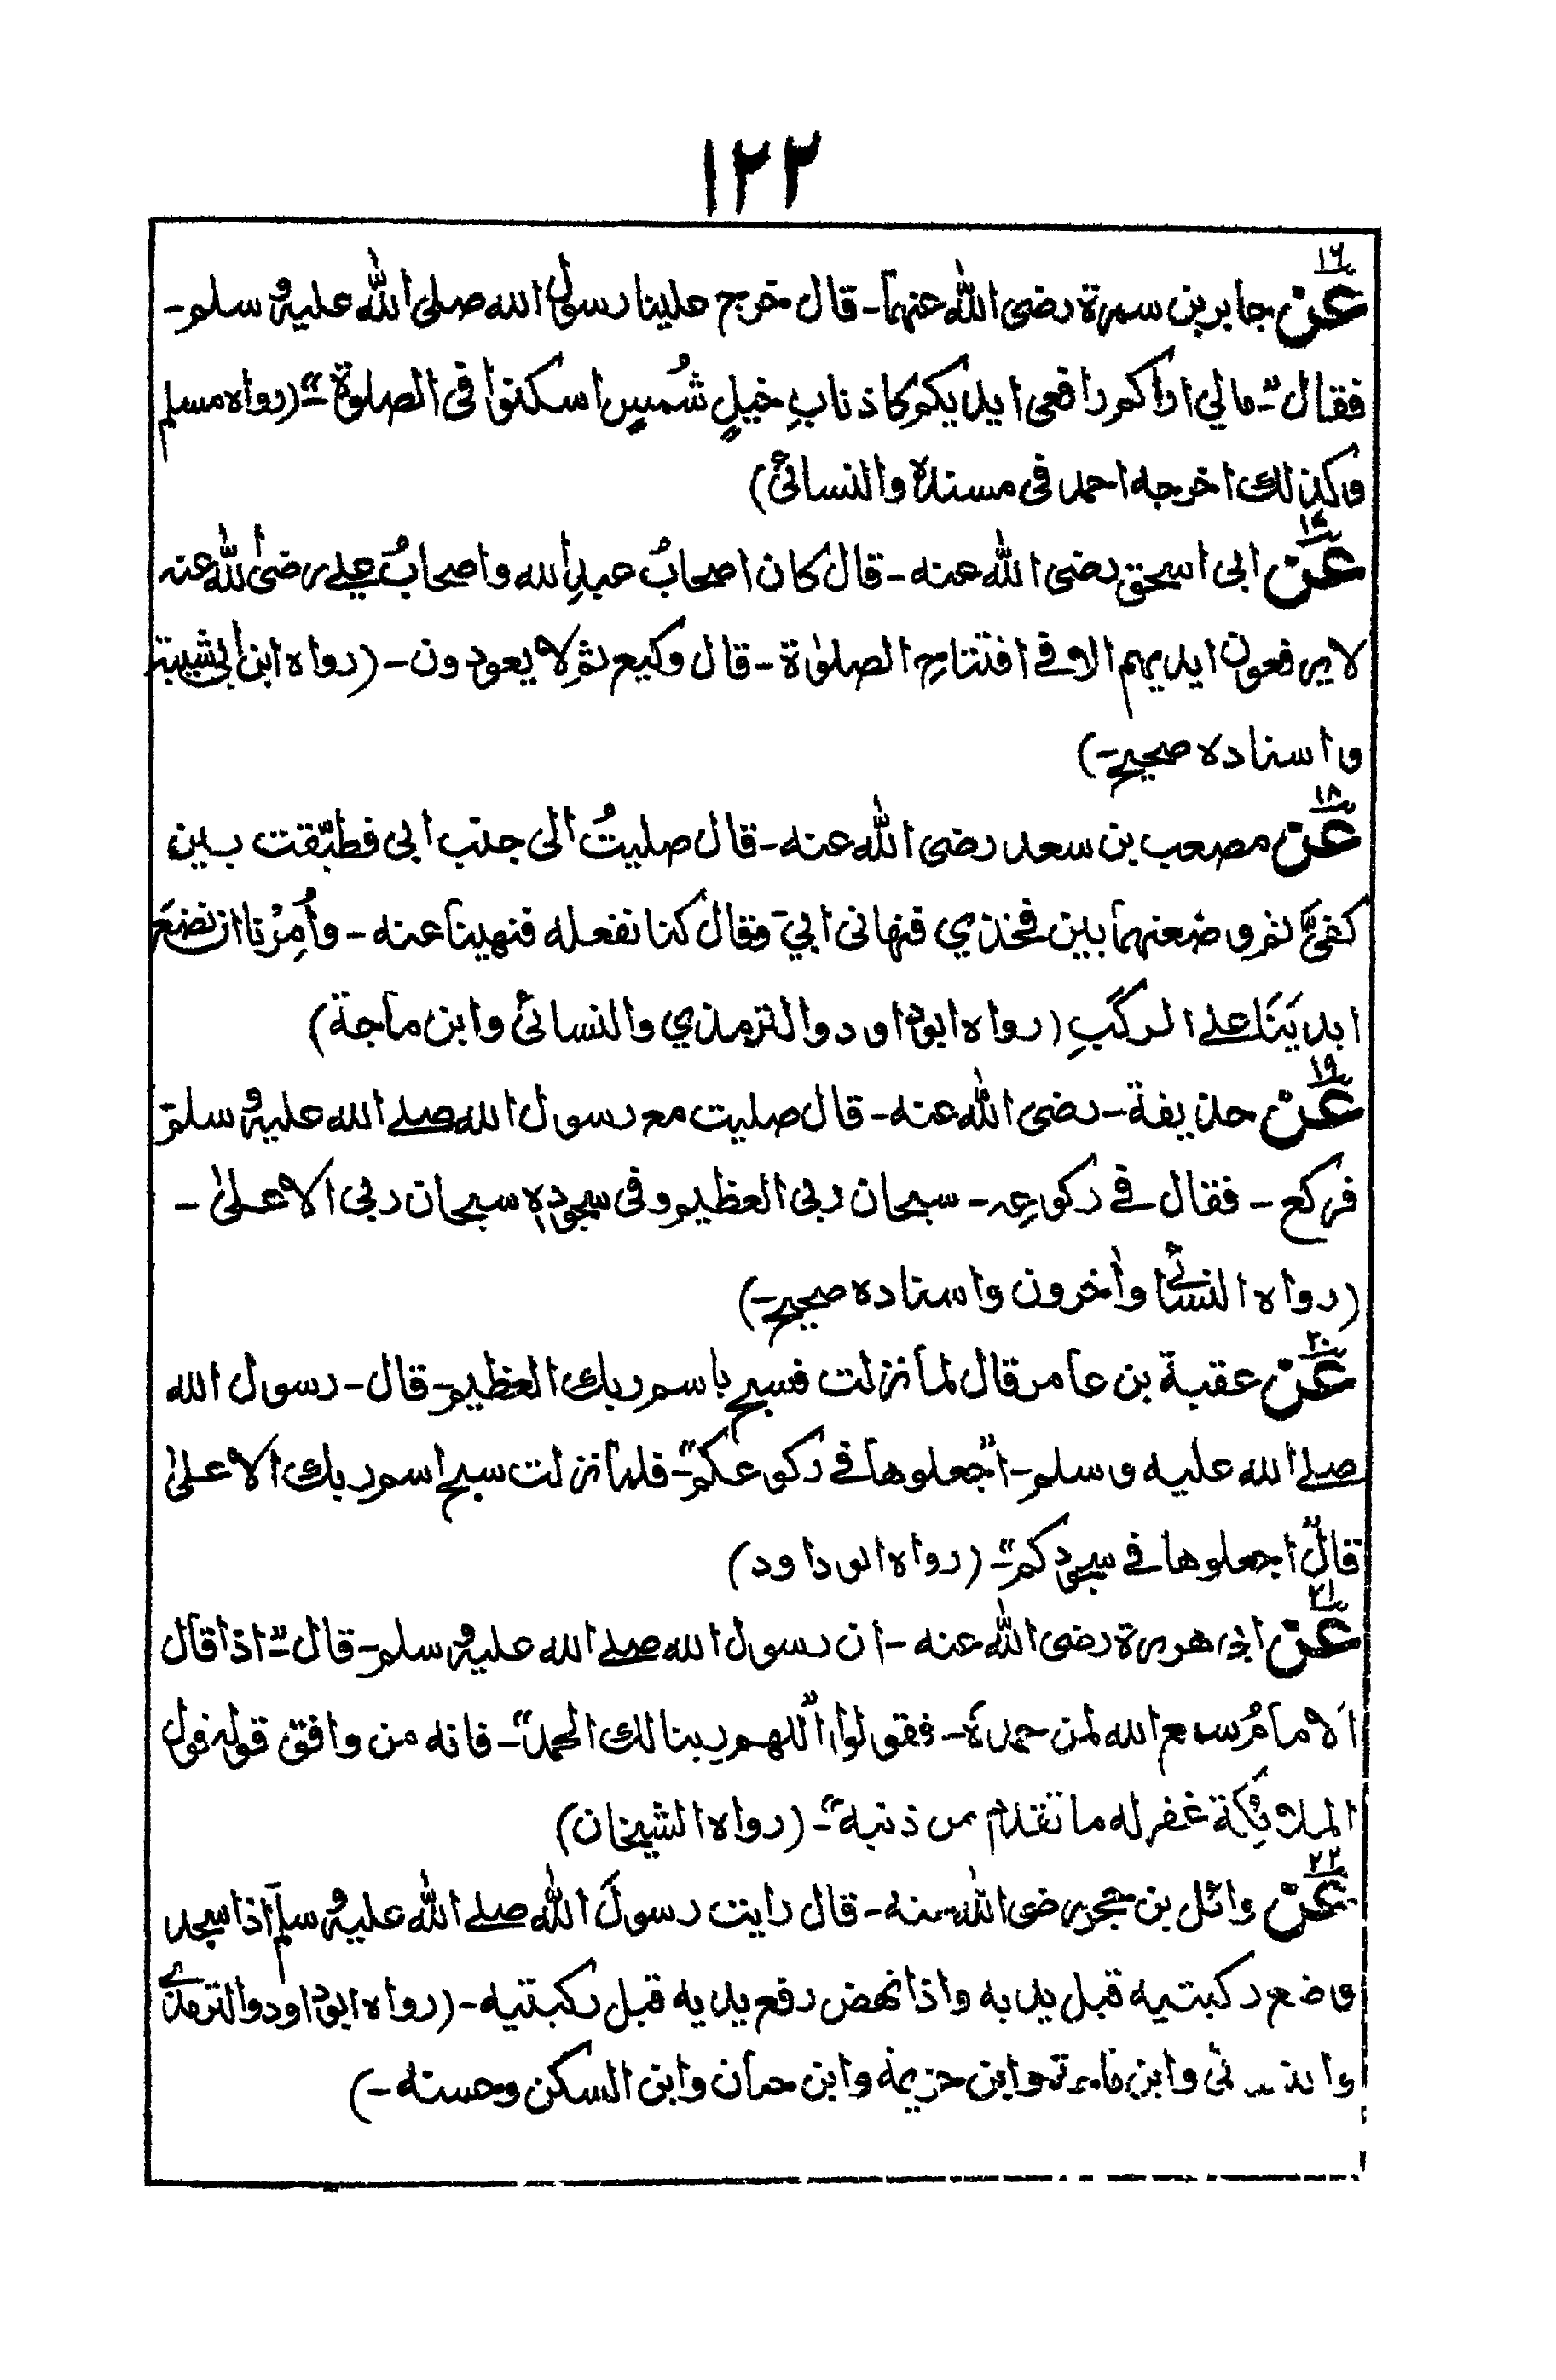 ١٢٢
١٦
عن جابر بن سمرة رضى الله عنهما۔ قال خرج علينا رسول الله صلى الله عليه وسلم۔
فقال "۔ مالي اراكم رافعى ايديكم كاذنابِ خيلٍ شُمسٍ اسكنوا فى الصلوة"۔ (رواه مسلم
وكذلك اخرجه احمد فى مسنده والنسائى)
١٧
عن ابى اسحق رضى الله عنه ۔ قال كان اصحابُ عبدِالله واصحابُ على رضى الله عنه
لا يرفعون ايديهم الا فى افتتاحِ الصلوٰة ۔ قال وكيع ثم لا يعودون ۔ (رواه ابن ابى شيبة
واسناده صحيح۔)
١٨
عن مصعب بن سعد رضى الله عنه ۔ قال صليتُ الى جنب ابى فطبّقت بين
كفىَّ ثم وضعتهما بين فخذي فنهانى ابي۔ وقال كنا نفعله فنهينا عنه ۔ وأُمِرْنا ان نضعَ
ايديَنَا على الركَبِ (رواه ابوداود والترمذي والنسائى وابن ماجة)
١٩
عن حذيفة ۔ رضى الله عنه ۔ قال صليت مع رسول الله صلى الله عليه وسلم
فركع ۔ فقال فى ركوعِه ۔ سبحان ربى العظيم وفى سجوده سبحان ربى الاعلىٰ ۔
(رواه النسائى واٰخرون واسناده صحيح۔)
٢٠
عن عقبة بن عامر قال لما نزلت فسبح باسم ربك العظيم۔ قال ۔ رسول الله
صلى الله عليه وسلم ۔ "اجعلوها فى ركوعكم"۔ فلما نزلت سبح اسم ربك الاعلىٰ
قال "اجعلوها فى سجودكم"۔ (رواه ابو داود)
٢١
عن ابى هريرة رضى الله عنه ۔ ان رسول الله صلى الله عليه وسلم ۔ قال "۔ اذا قال
الامامُ سمع الله لمن حمده ۔ فقولوا "اللهم ربنا لك الحمد" ۔ فانه من وافق قوله قول
الملائِكة غفر له ما تقدم من ذنبه"۔ (رواه الشيخان)
٢٢
عن وائل بن حجر رضى الله عنه ۔ قال رايت رسولَ الله صلى الله عليه وسلم اذا سجد
وضع ركبتيه قبل يديه واذا نهض رفع يديه قبل ركبتيه ۔ (رواه ابوداود والترمذى
وابن خزيمة وابن حبان وابن السكن وحسنه ۔)